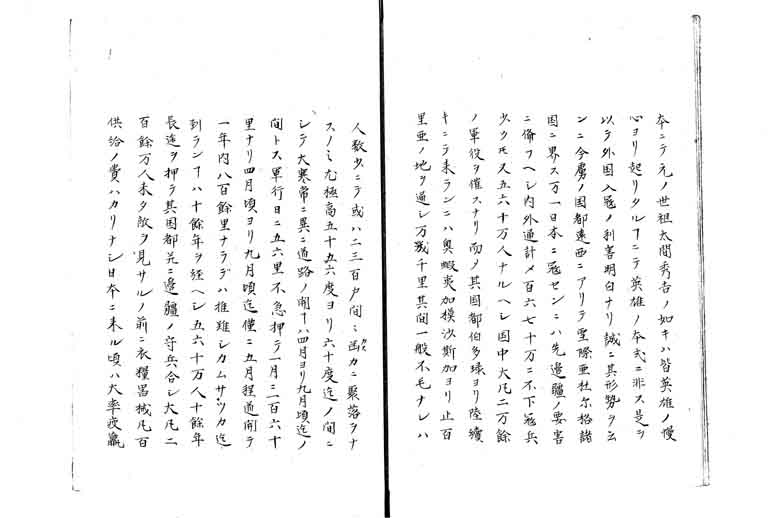 本ニテ元ノ世祖太閤秀吉ノ如キハ皆英雄ノ慢
心ヨリ起リタルヿニテ英雄ノ本式ニ非ス是ヲ
以テ外国入冦ノ利害明白ナリ誠ニ其形勢ヲ云
ンニ今虜ノ国都遠西ニアリテ雪際亜杜尓格諸
国ニ界ス万一日本ニ冦センニハ先邉疆ノ要害
ニ備フヘシ内外通計メ百六七十万ニ不下冦兵
少クモ又五六十万人ナルヘシ国中大凡二万餘
ノ軍役ヲ催スナリ而メ其国都伯多琭ヨリ陸續
キニテ来ランニハ奥蝦夷加模沙斯加ヨリ止百
里亜ノ地ヲ過シ万幾千里其間一般不毛ナレハ
人数少ニテ或ハ二三百戸間ニ幽カニ聚落ヲナ
スノミ尤極高五十五六度ヨリ六十度迄ノ間ニ
シテ大寒常ニ異ニ道路ノ開ヿハ四月ヨリ九月頃迄ノ
間トス軍行日ニ五六里不急押テ一月ニ二百六十
里ナリ四月頃ヨリ九月頃迄僅ニ五月程道開テ
一年内八百餘里ナラデハ推難シカムサツカ迄
到ランヿハ十餘年ヲ経ヘシ五六十万人十餘年
長途ヲ押テ其国都并ニ邉疆ノ守兵合シ大凡二
百餘万人未タ敵ヲ見サルノ前ニ衣糧器械凡百
供給ノ費ハカリナシ日本ニ来ル頃ハ大率疲羸